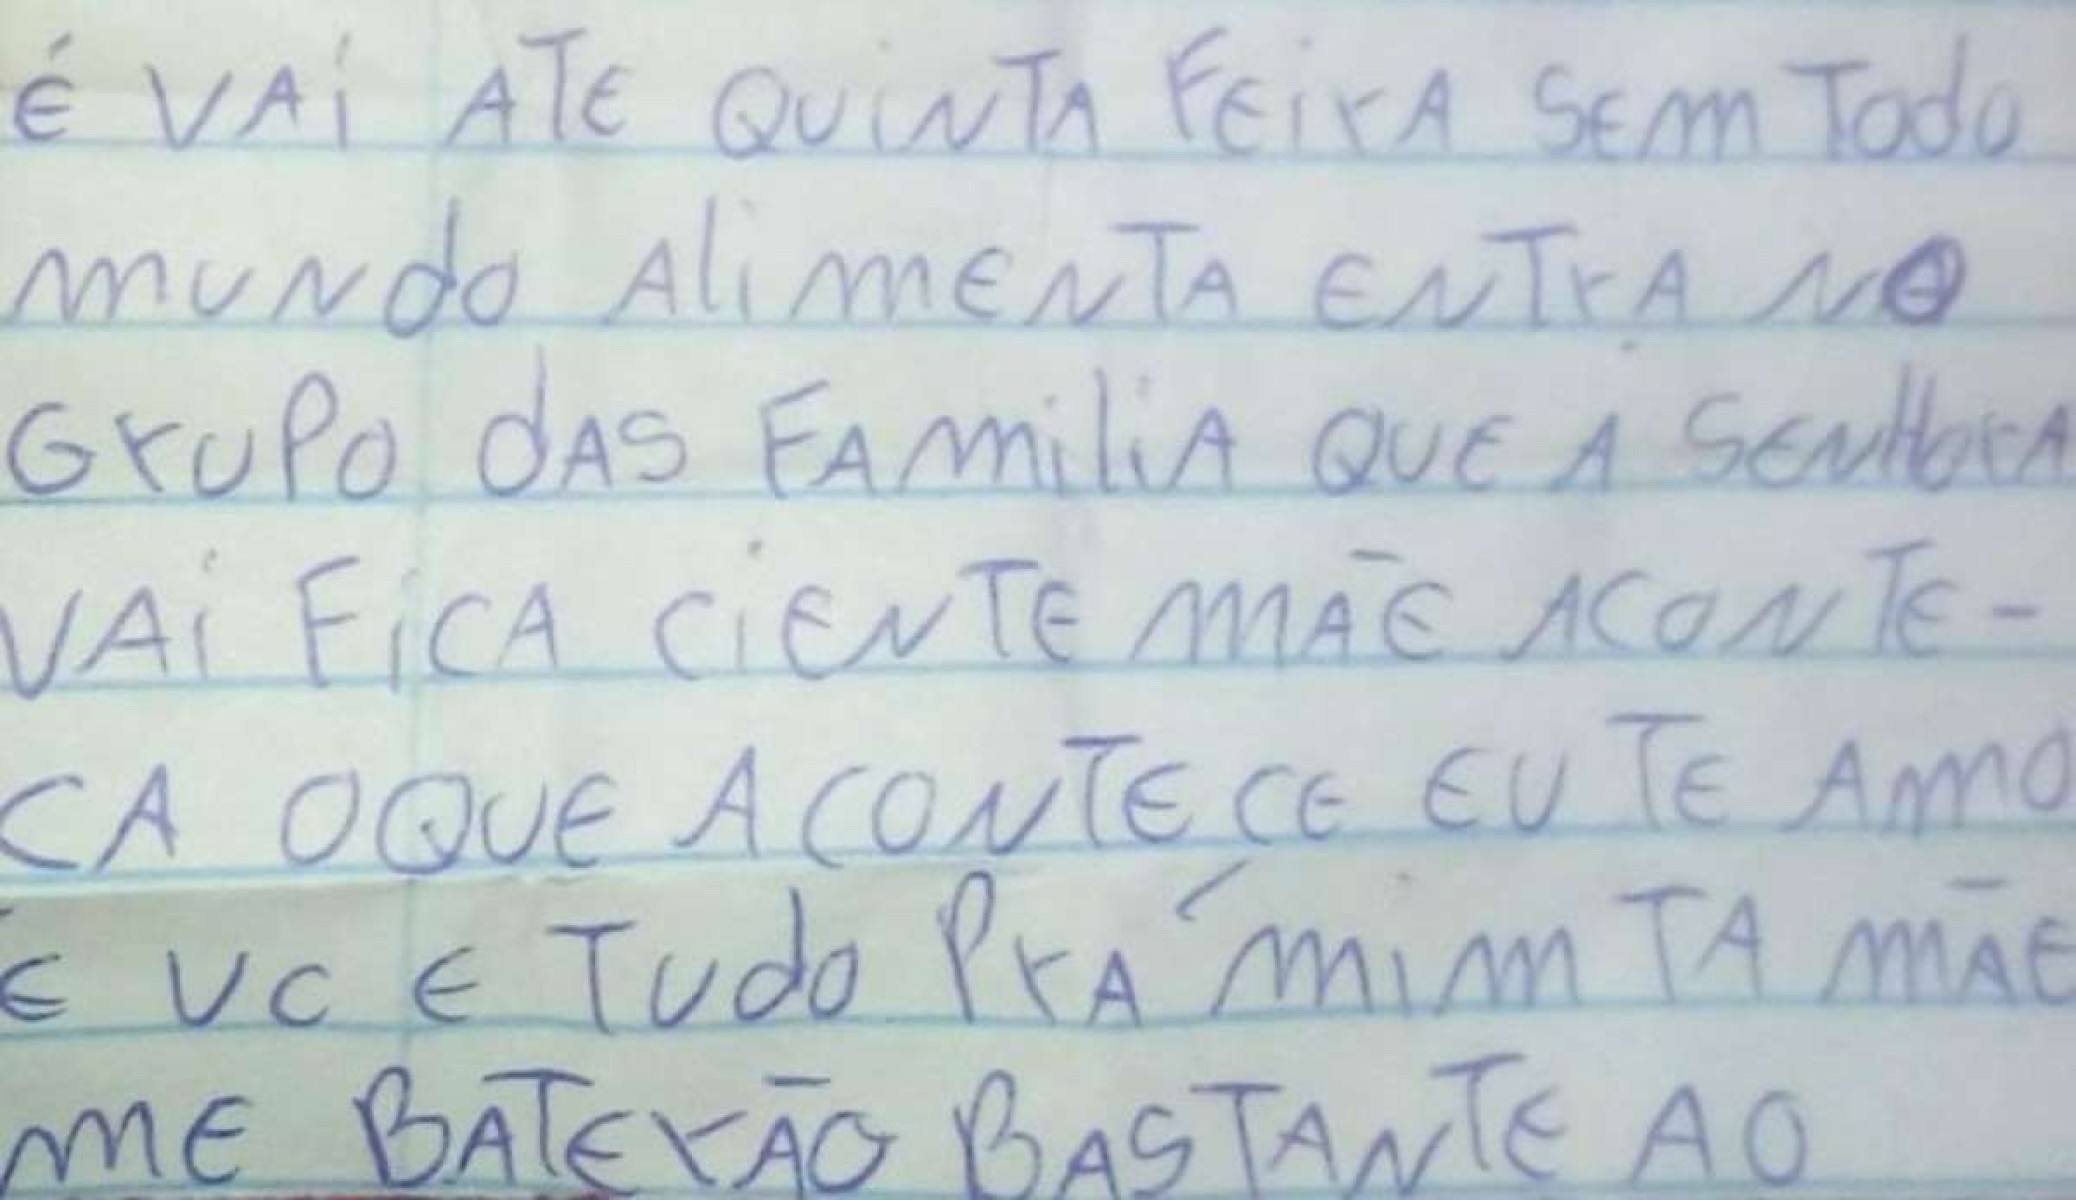 É VAi ATE QUiNTA FEirA SEm Todo
mUNdo AlimENTA ENTrA NO
GrUPO dAS FAmiliA QUE A SENHorA
VAi FiCA CiENTE mÃE ACONTE-
CA OQUE ACONTECE EU TE AmO
E VC E TUdo PrA mim TA mÃE
mE BATErÃO BASTANTE AO